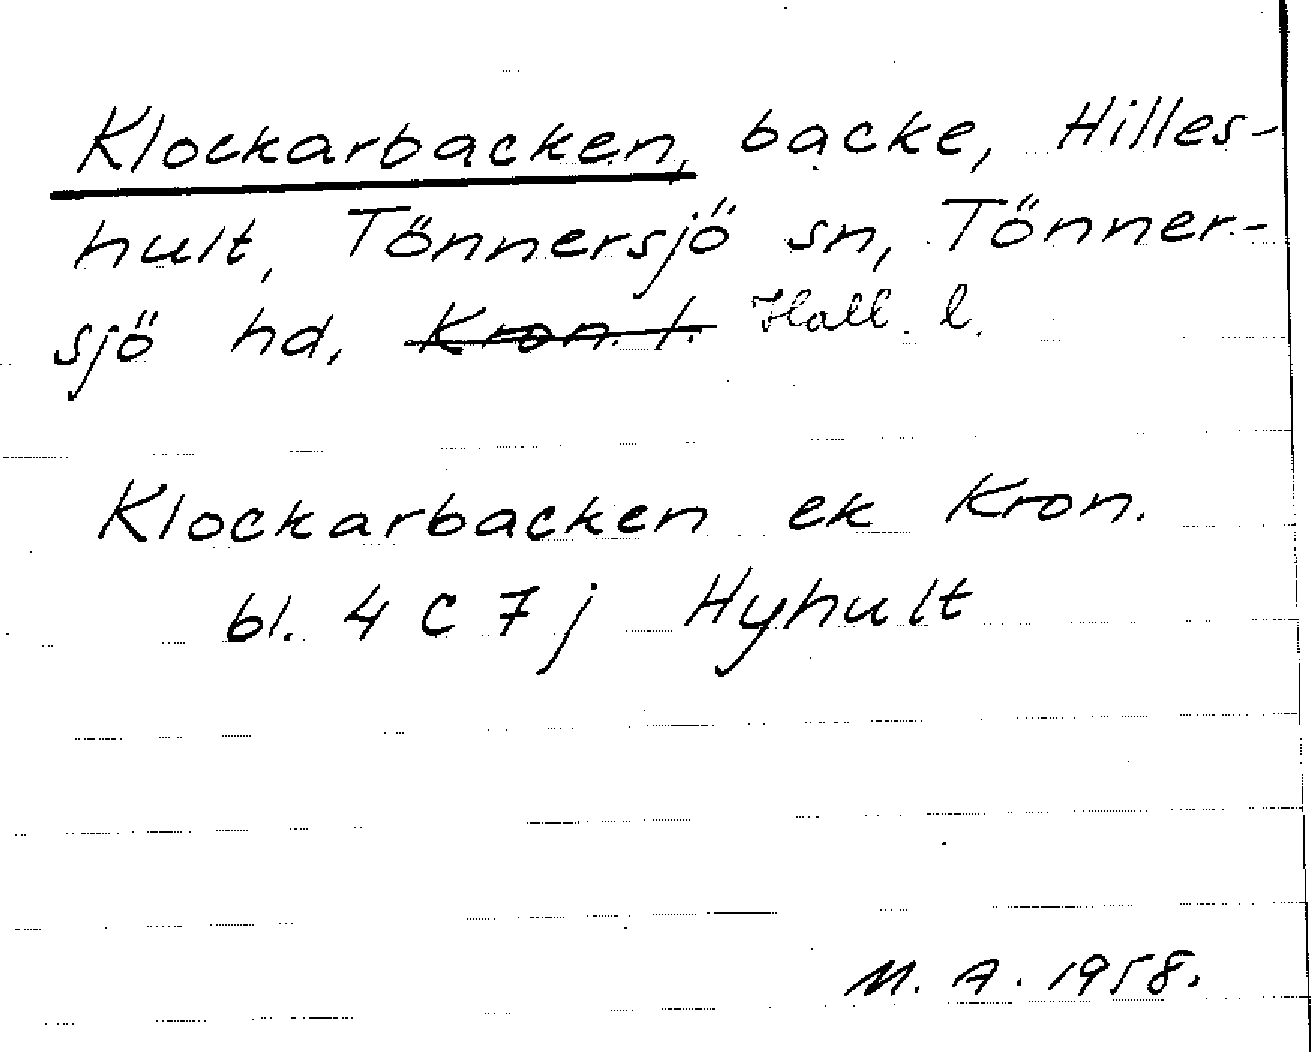 Klockarbacken, backe, Hilles-
hult, Tönnersjö sn, Tönner-
sjö hd, Kron. l. Hall. l.
Klockarbacken ek Kron.
bl. 4 C 7 j Hyhult
M. A. 1958.